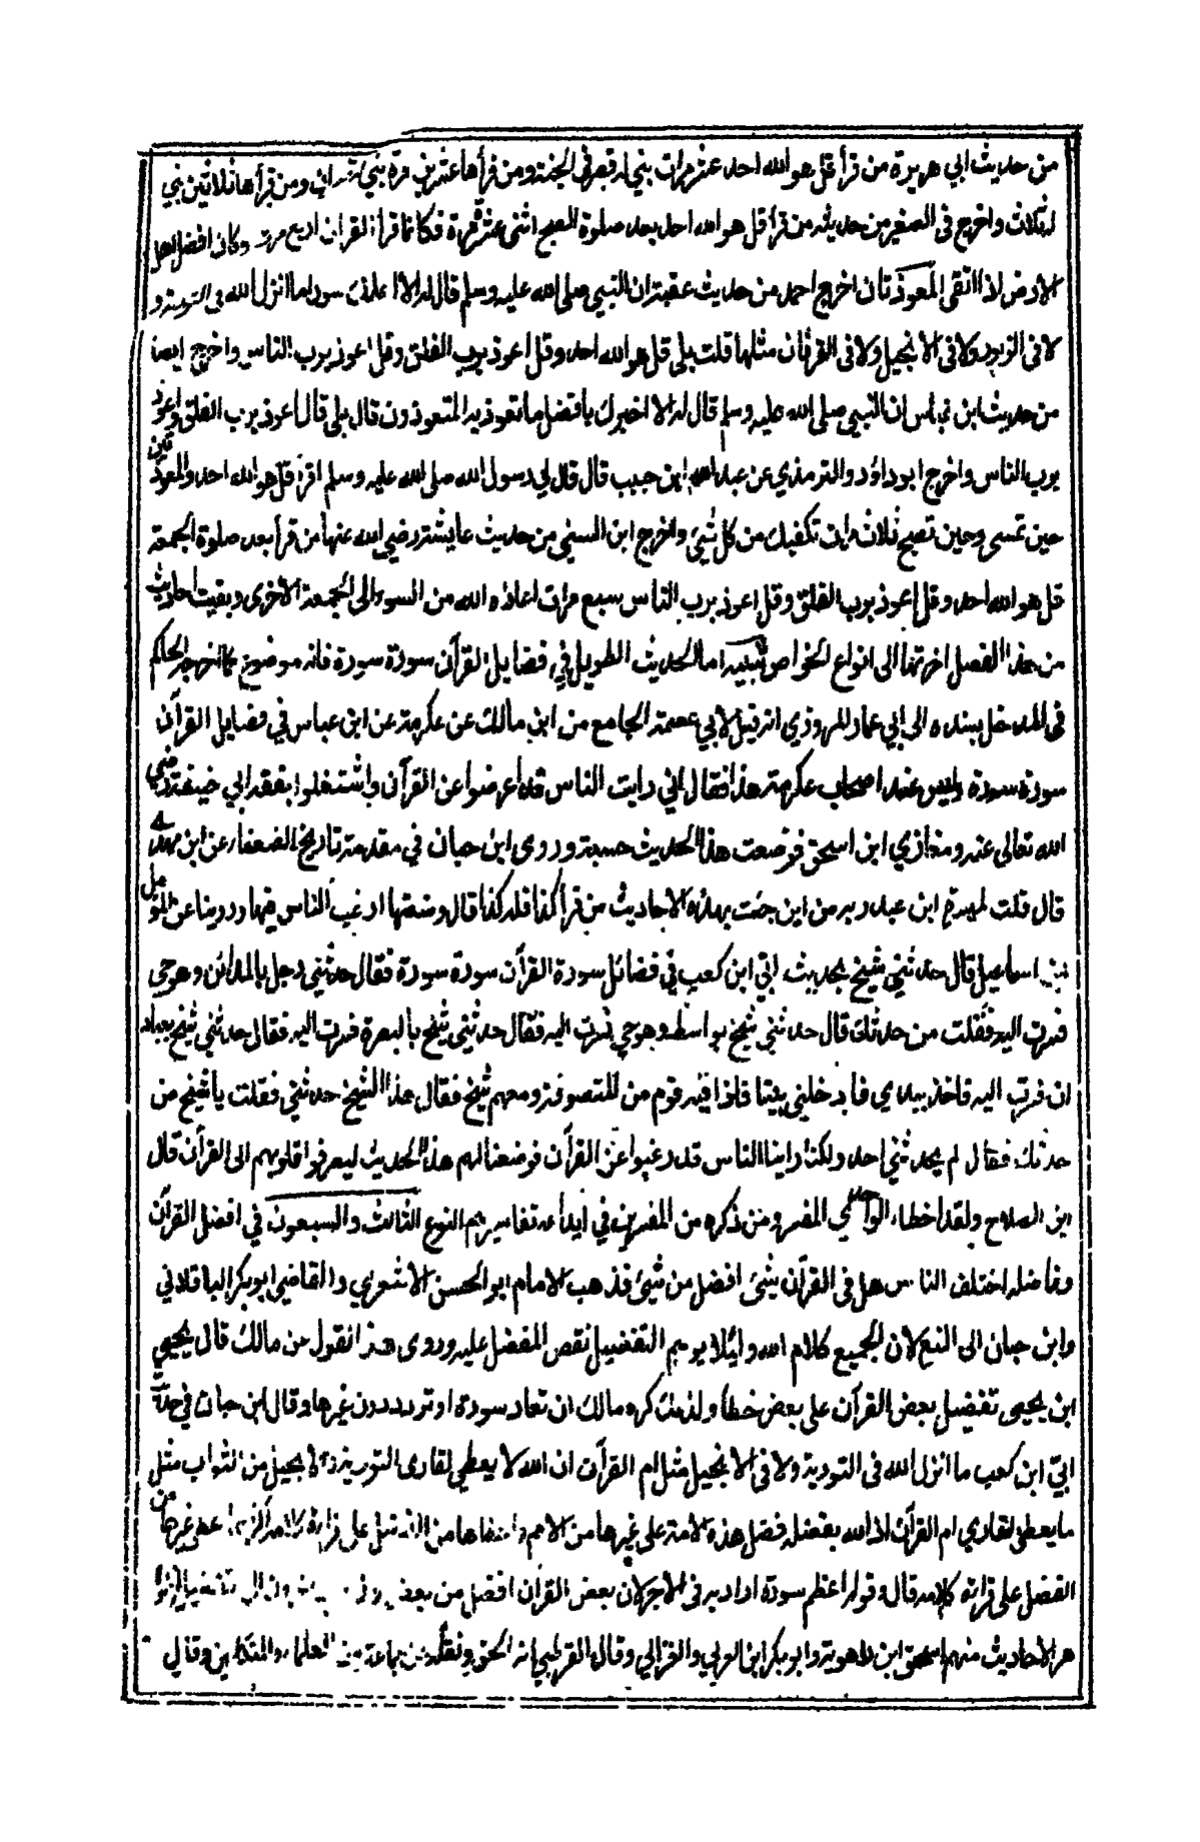 من حديث ابي هريرة من قرأ قل هو الله احد عشر مرات بني له قصر في الجنة ومن قرأها عشرين مرة بني له قصران ومن قرأها ثلاثين بني
له ثلاث واخرج في الصغير من حديثه من قرأ قل هو الله احد بعد صلوة الصبح اثنى عشرة مرة فكانما قرأ القران اربع مرت وكان افضل اهل
الارض اذا اتقى المعوذتان اخرج احمد من حديث عقبة ان النبي صلى الله عليه وسلم قال له الا اعلمك سورا ما انزل الله في التورية و
لا في الزبور ولا في الانجيل ولا في الفرقان مثلها قلت بلى قل هو الله احد وقل اعوذ برب الفلق وقل اعوذ برب الناس واخرج ايضا
من حديث ابن عباس ان النبي صلى الله عليه وسلم قال له الا اخبرك بافضل ما تعوذ به المتعوذون قال بلى قال اعوذ برب الفلق واعوذ
برب الناس واخرج ابو داؤد والترمذي عن عبد الله ابن حبيب قال قال لي رسول الله صلى الله عليه وسلم اقرأ قل هو الله احد والمعوذتين
حين تمسى وحين تصبح ثلاث مرات تكفيك من كل شئ واخرج ابن السني من حديث عايشة رضي الله عنها من قرأ بعد صلوة الجمعة
قل هو الله احد وقل اعوذ برب الفلق وقل اعوذ برب الناس سبع مرات اعاذه الله من السوء الى الجمعة الاخرى وبقيت احاديث
من هذا الفصل اخرتها الى انواع الخواص تنبيه اما الحديث الطويل في فضايل القرآن سورة سورة فانه موضوع كما اخرجه الحاكم
في المدخل بسنده الى ابي عمار المروزي انه قيل لابي عصمة الجامع من اين مالك عن عكرمة عن ابن عباس في فضايل القرآن
سورة سورة وليس عند اصحاب عكرمة هذا فقال اني رايت الناس قد اعرضوا عن القرآن واشتغلوا بفقه ابي حنيفة رضي
الله تعالى عنه ومغازي ابن اسحق فوضعت هذا الحديث حسبة وروى ابن حبان في مقدمة تاريخ الضعفاء عن ابن مهدي
قال قلت لميسرة ابن عبد ربه من اين جئت بهذه الاحاديث من قرأ كذا فله كذا قال وضعتها ارغب الناس فيها وروينا عن المؤمل
بن اسماعيل قال حدثني شيخ بحديث ابي ابن كعب في فضائل سورة القرآن سورة سورة فقال حدثني رجل بالمدائن وهو حي
فصرت اليه فقلت من حدثك قال حدثني شيخ بواسط وهو حي فصرت اليه فقال حدثني شيخ بالبصرة فصرت اليه فقال حدثني شيخ بعبادان
ان فصرت اليه فاخذ بيدي فادخلني بيتا فاذا فيه قوم من المتصوفة ومعهم شيخ فقال هذا الشيخ حدثني فقلت ياشيخ من
حدثك فقال لم يحدثني احد ولكنا راينا الناس قد رغبوا عن القرآن فوضعنا لهم هذا الحديث ليصرفوا قلوبهم الى القرآن قال
ابن الصلاح ولقد اخطاء الواحدي المفسر ومن ذكره من المفسرين في ايداعه تفاسيرهم النوع الثالث والسبعون في افضل القرآن
وفاضله اختلف الناس هل في القرآن شئ افضل من شئ فذهب الامام ابو الحسن الاشعري والقاضي ابو بكر الباقلاني
وابن حبان الى المنع لان الجميع كلام الله ولئلا يوهم التفضيل نقص المفضل عليه وروى هذا القول عن مالك قال يحيى
ابن يحيى تفضيل بعض القرآن على بعض خطأ ولذلك كره مالك ان تعاد سورة او تردد دون غيرها وقال ابن حبان في حديث
ابي ابن كعب ما انزل الله في التورية ولا في الانجيل مثل ام القرآن ان الله لا يعطي لقارى التورية والانجيل من الثواب مثل
ما يعطي لقاري ام القرآن اذ الله بفضله فضل هذه الامة على غيرها من الامم واعطاها من الفضل على قراءة كلامه اكثر مما اعطى غيرها من
الفضل على قراءة كلامه قال وقوله اعظم سورة اراد به في الاجر لا ان بعض القران افضل من بعض وذهب اخرون الى التفضيل لظوا
هر الاحاديث منهم اسحق ابن راهويه وابو بكر ابن العربي والغزالي وقال القرطبي انه الحق ونقله عن جماعة من العلماء والمتكلمين وقال